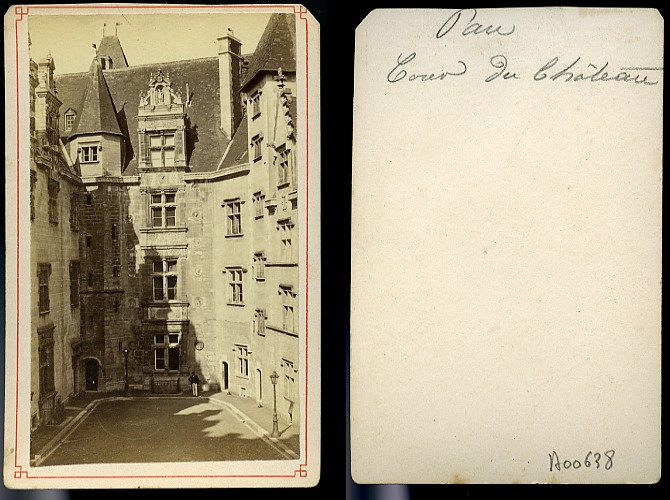 Pau
Cour du Château
A00638